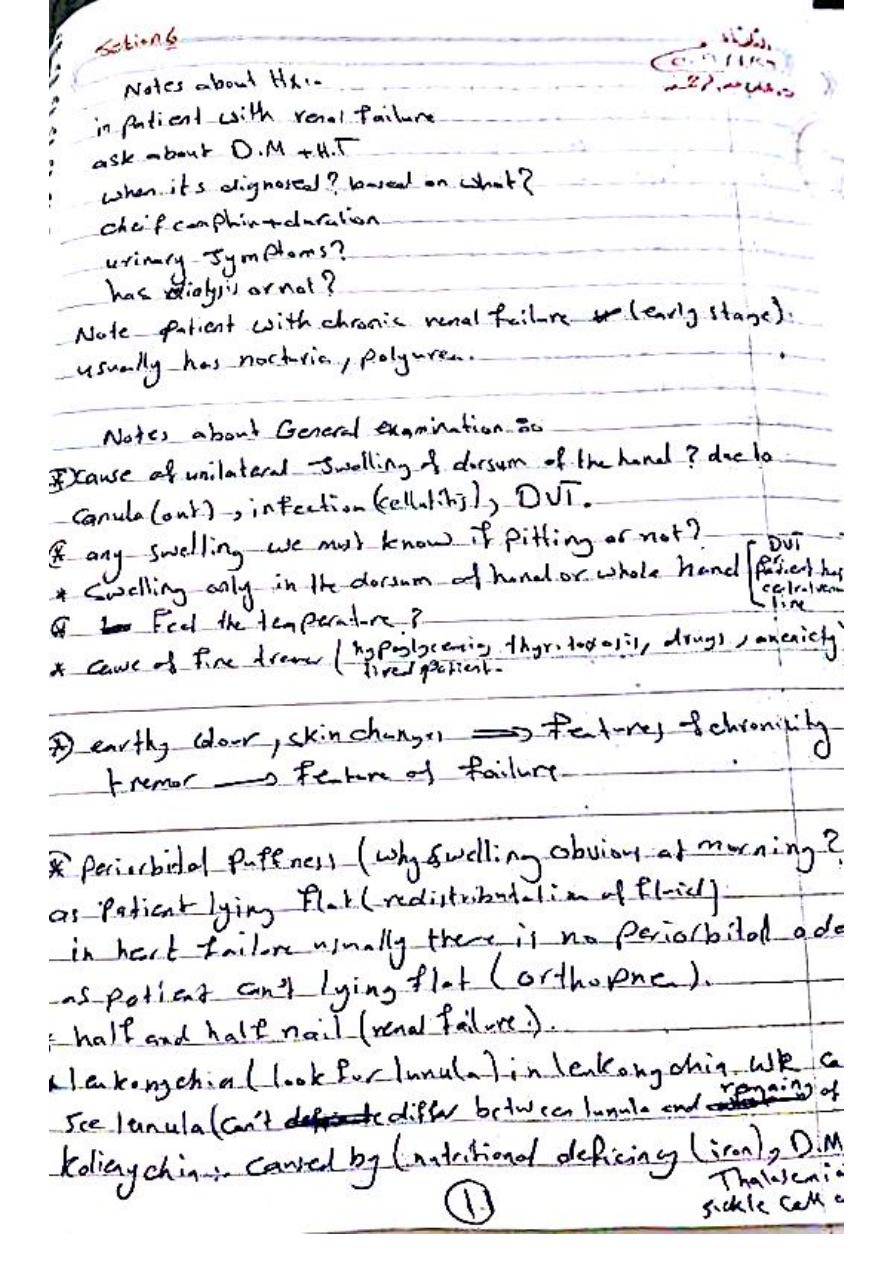 Section 6
Notes about Hx:-
in patient with renal failure
ask about D.M + H.T
when its dignosed? based on what?
cheif complain + duration
urinary symptoms?
has dialysis or not?
Note patient with chronic renal failure (early stage).
usually has nocturia, polyurea.
Notes about General examination
cause of unilateral swelling of dorsum of the hand? due to
canula (out), infection (cellulitis), DVT.
* any swelling we must know if pitting or not?
* Swelling only in the dorsum of hand or whole hand [DVT
patient has
central venous
line
Feel the temperature?
* cause of fine tremor (hypoglycemia, thyrotoxosis, drugs, anexiety
tired patient.
* earthy colour, skin changes ⟹ features of chronicity
tremor ⟶ feature of failure
* periorbital puffness (why swelling obvious at morning?
as patient lying flat (redistributation of fluid).
in heart failure usually there is no periorbital ode
as patient can't lying flat (orthopnea).
half and half nail (renal failure).
leukonychia (look for lunula) in leukonychia we ca
see lunula (can't differ between lunula and remaining of
koilenychia:- caused by (nutritional deficincy (iron), D.M
Thalasemia
sickle cell a
1